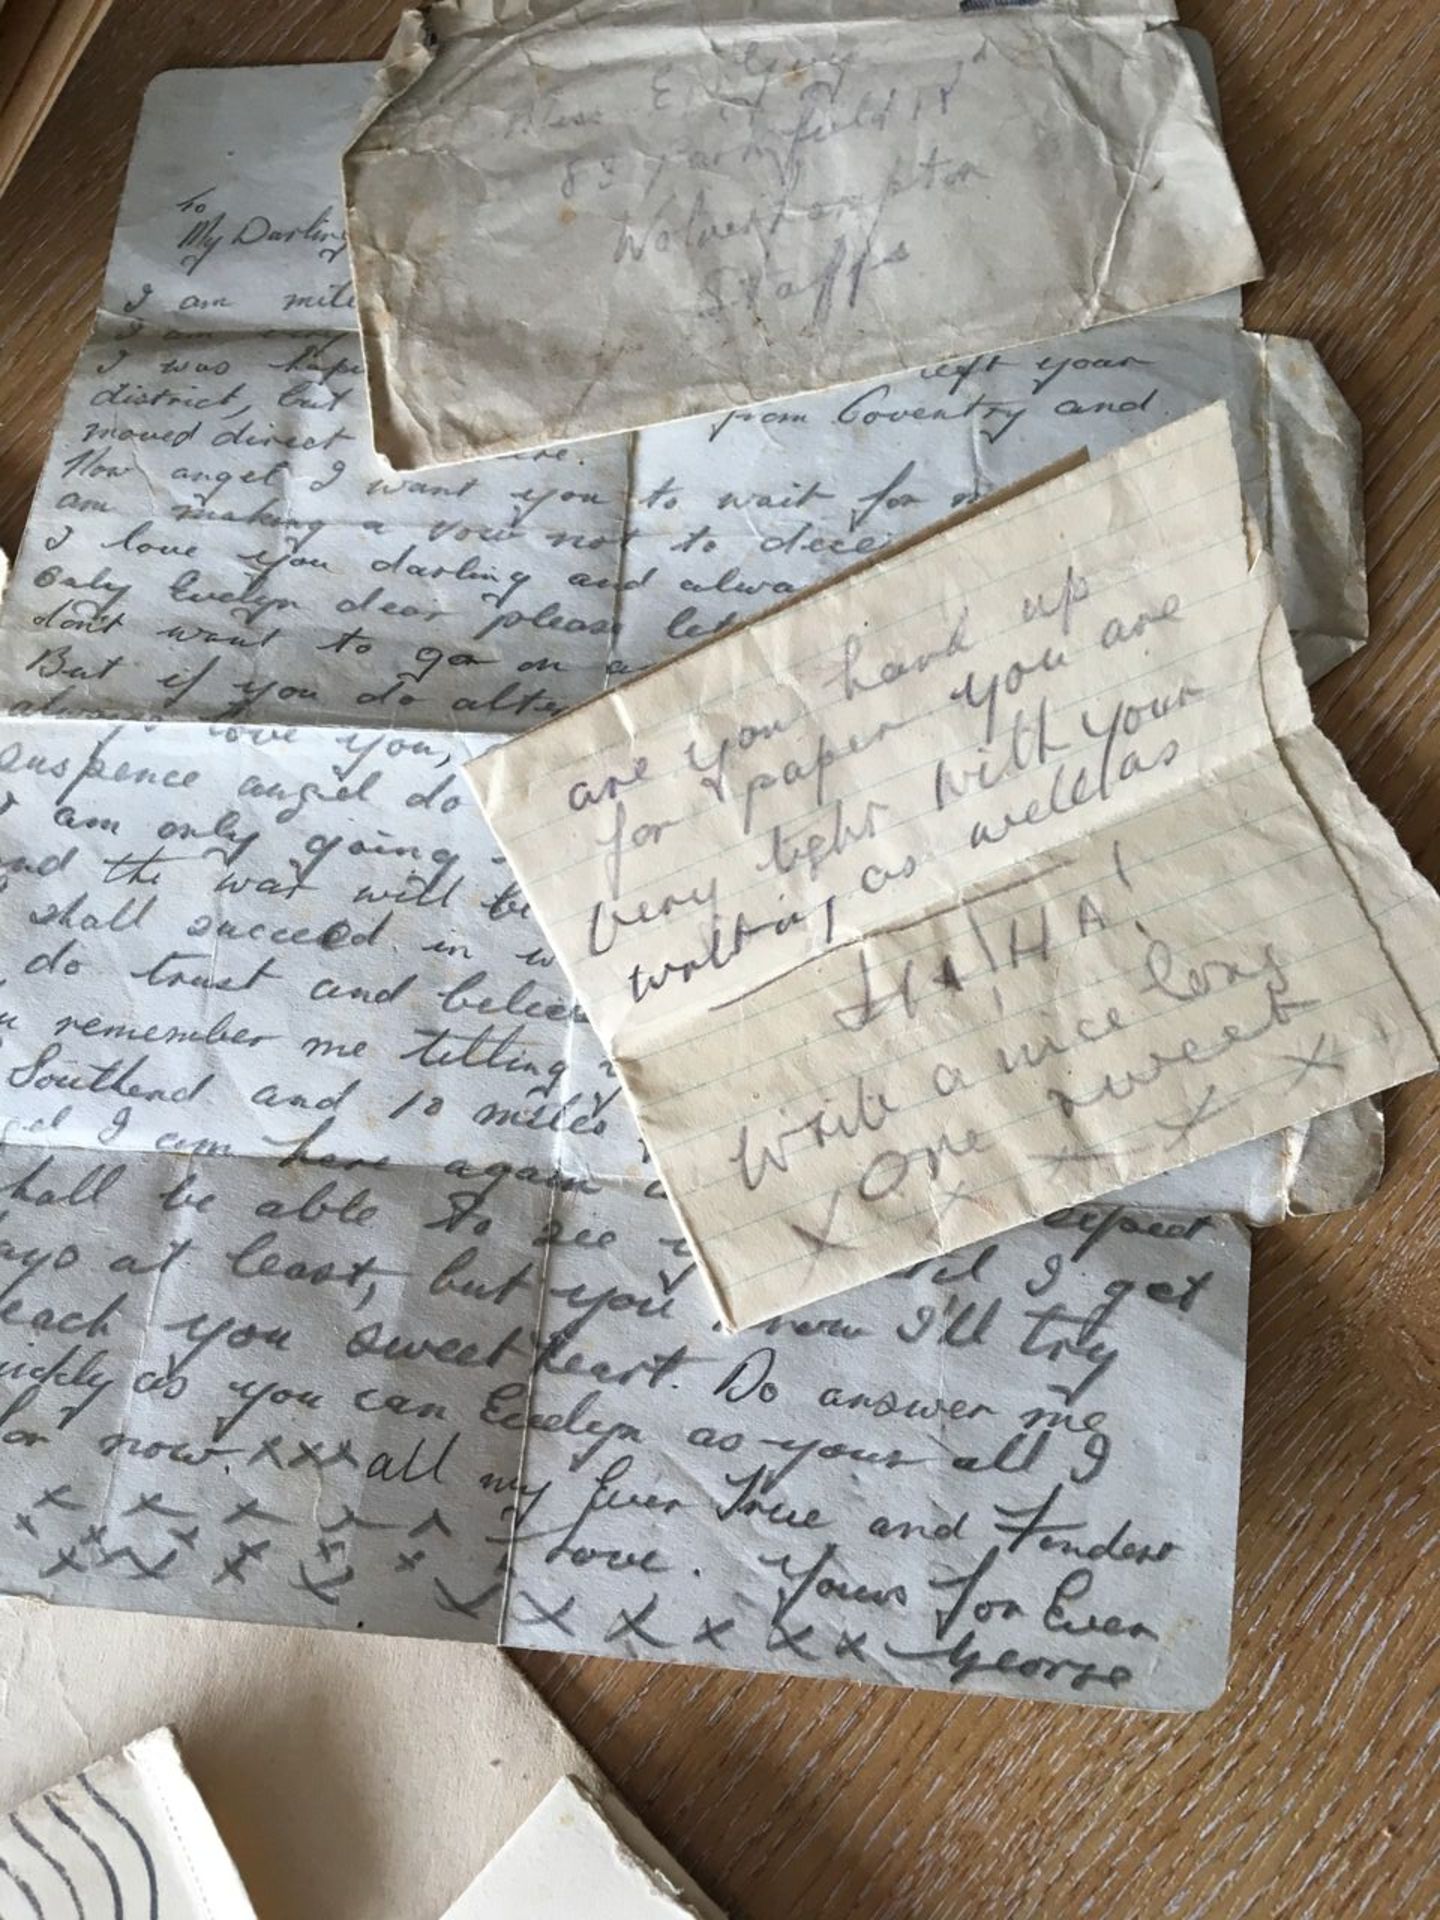 Miss E Young
83 Parkfield Rd
Wolverhampton
Staffs
To
My Darling
I am mile
I am
I was hopi left your
district, but from Coventry and
moved direct
Now angel I want you to wait for
am making a vow not to decei
I love you darling and alwa
Only Evelyn dear please let
don't want to go on a
But if you do alte
always love you,
suspence angel do
I am only going
and the war will be
shall succeed in w
do trust and believe
remember me telling
Southend and 10 miles
I am here again a
shall be able to see y expect
days at least, but you I get
each you sweetheart. I'll try
quickly as you can Evelyn Do answer me
for now. xxx as your all I
all my Ever True and Tender
x x x x x Love. Yours For Ever
x x x x x x
x x x x x x x x x x x George
are you hard up
for paper you are
very tight with your
writing as well as
HA HA!
write a nice long
one sweet
x x x x x